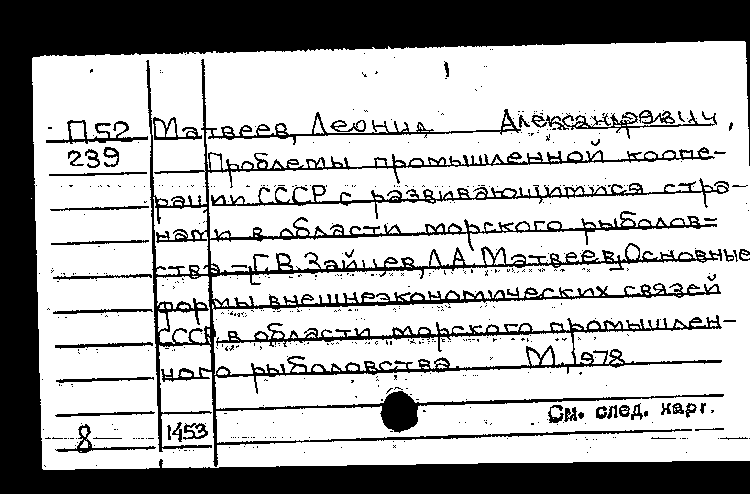 П52 Матвеев, Леонид Александрович,
239 Проблемы промышленной коопе-
рации СССР с развивающимися стра-
нами в области морского рыболов=
ства.-[Г.В.Зайцев, Л.А.Матвеев, Основные
формы внешнеэкономических связей
СССР в области морского промышлен-
ного рыболовства. М., 1978.
См. след. карт.
8 1453